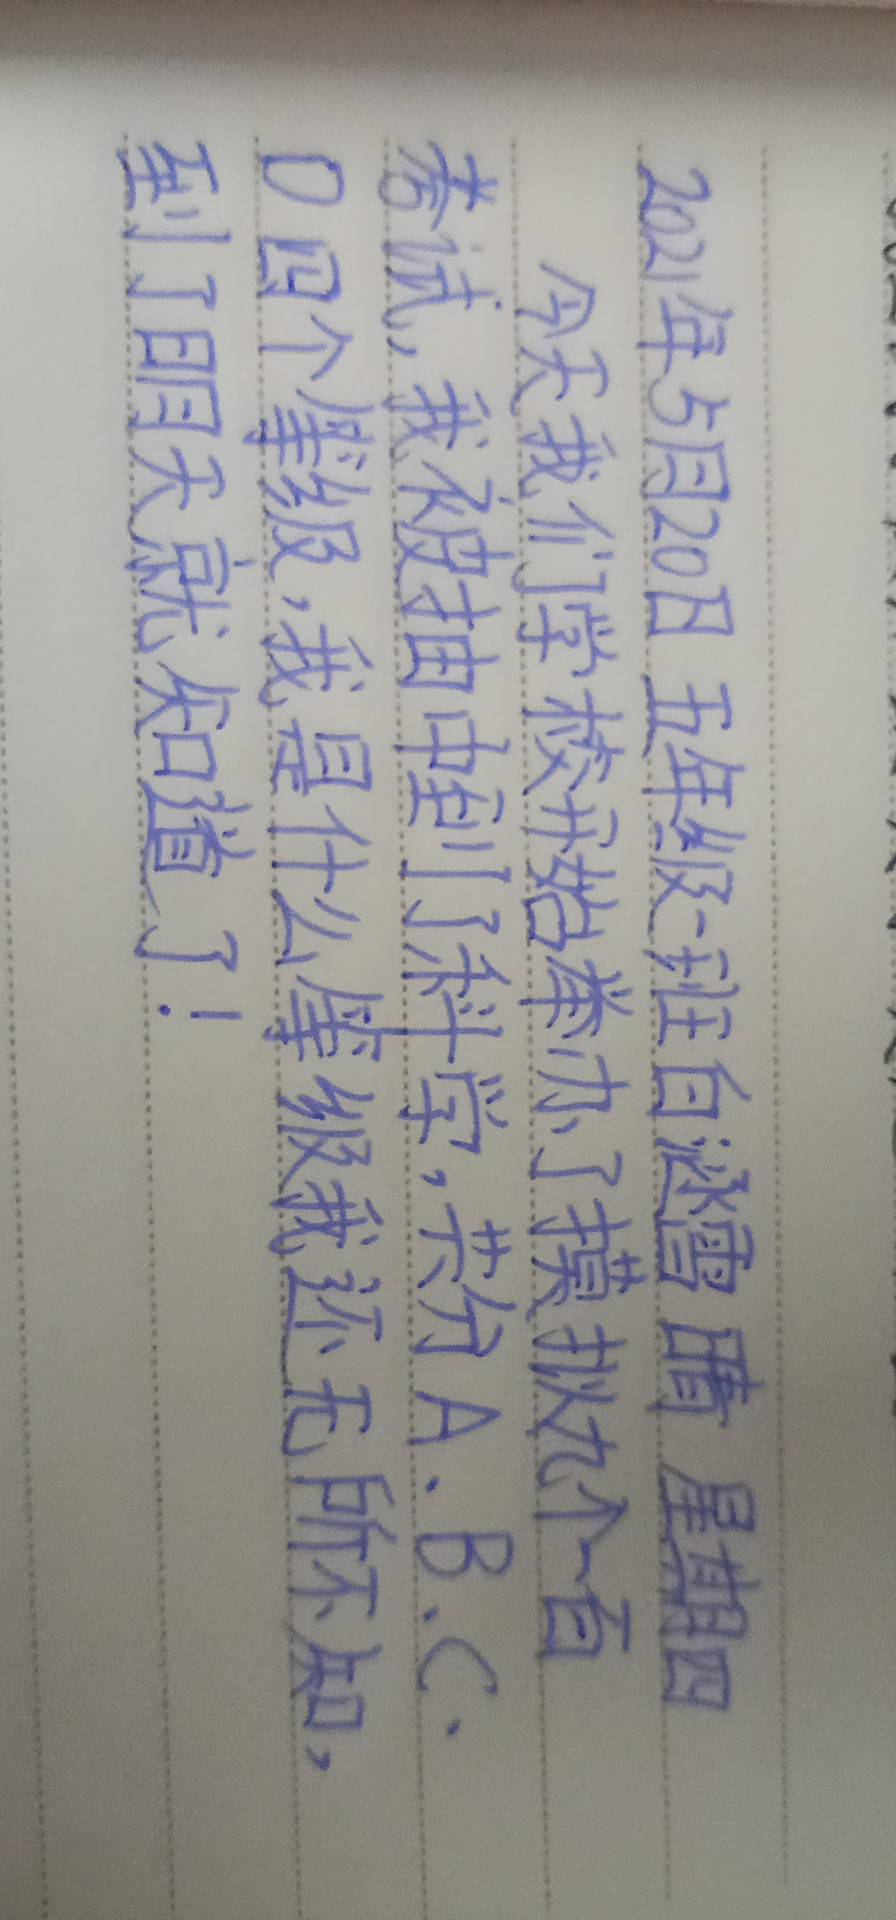 2021年5月20日 五年级一班 白泌雪 晴 星期四
今天我们学校开始举办了摸拟九个一百
考试，我被抽中到了科学，共分A、B、C、
D四个等级，我是什么等级我还无所不知，
到了明天就知道了！